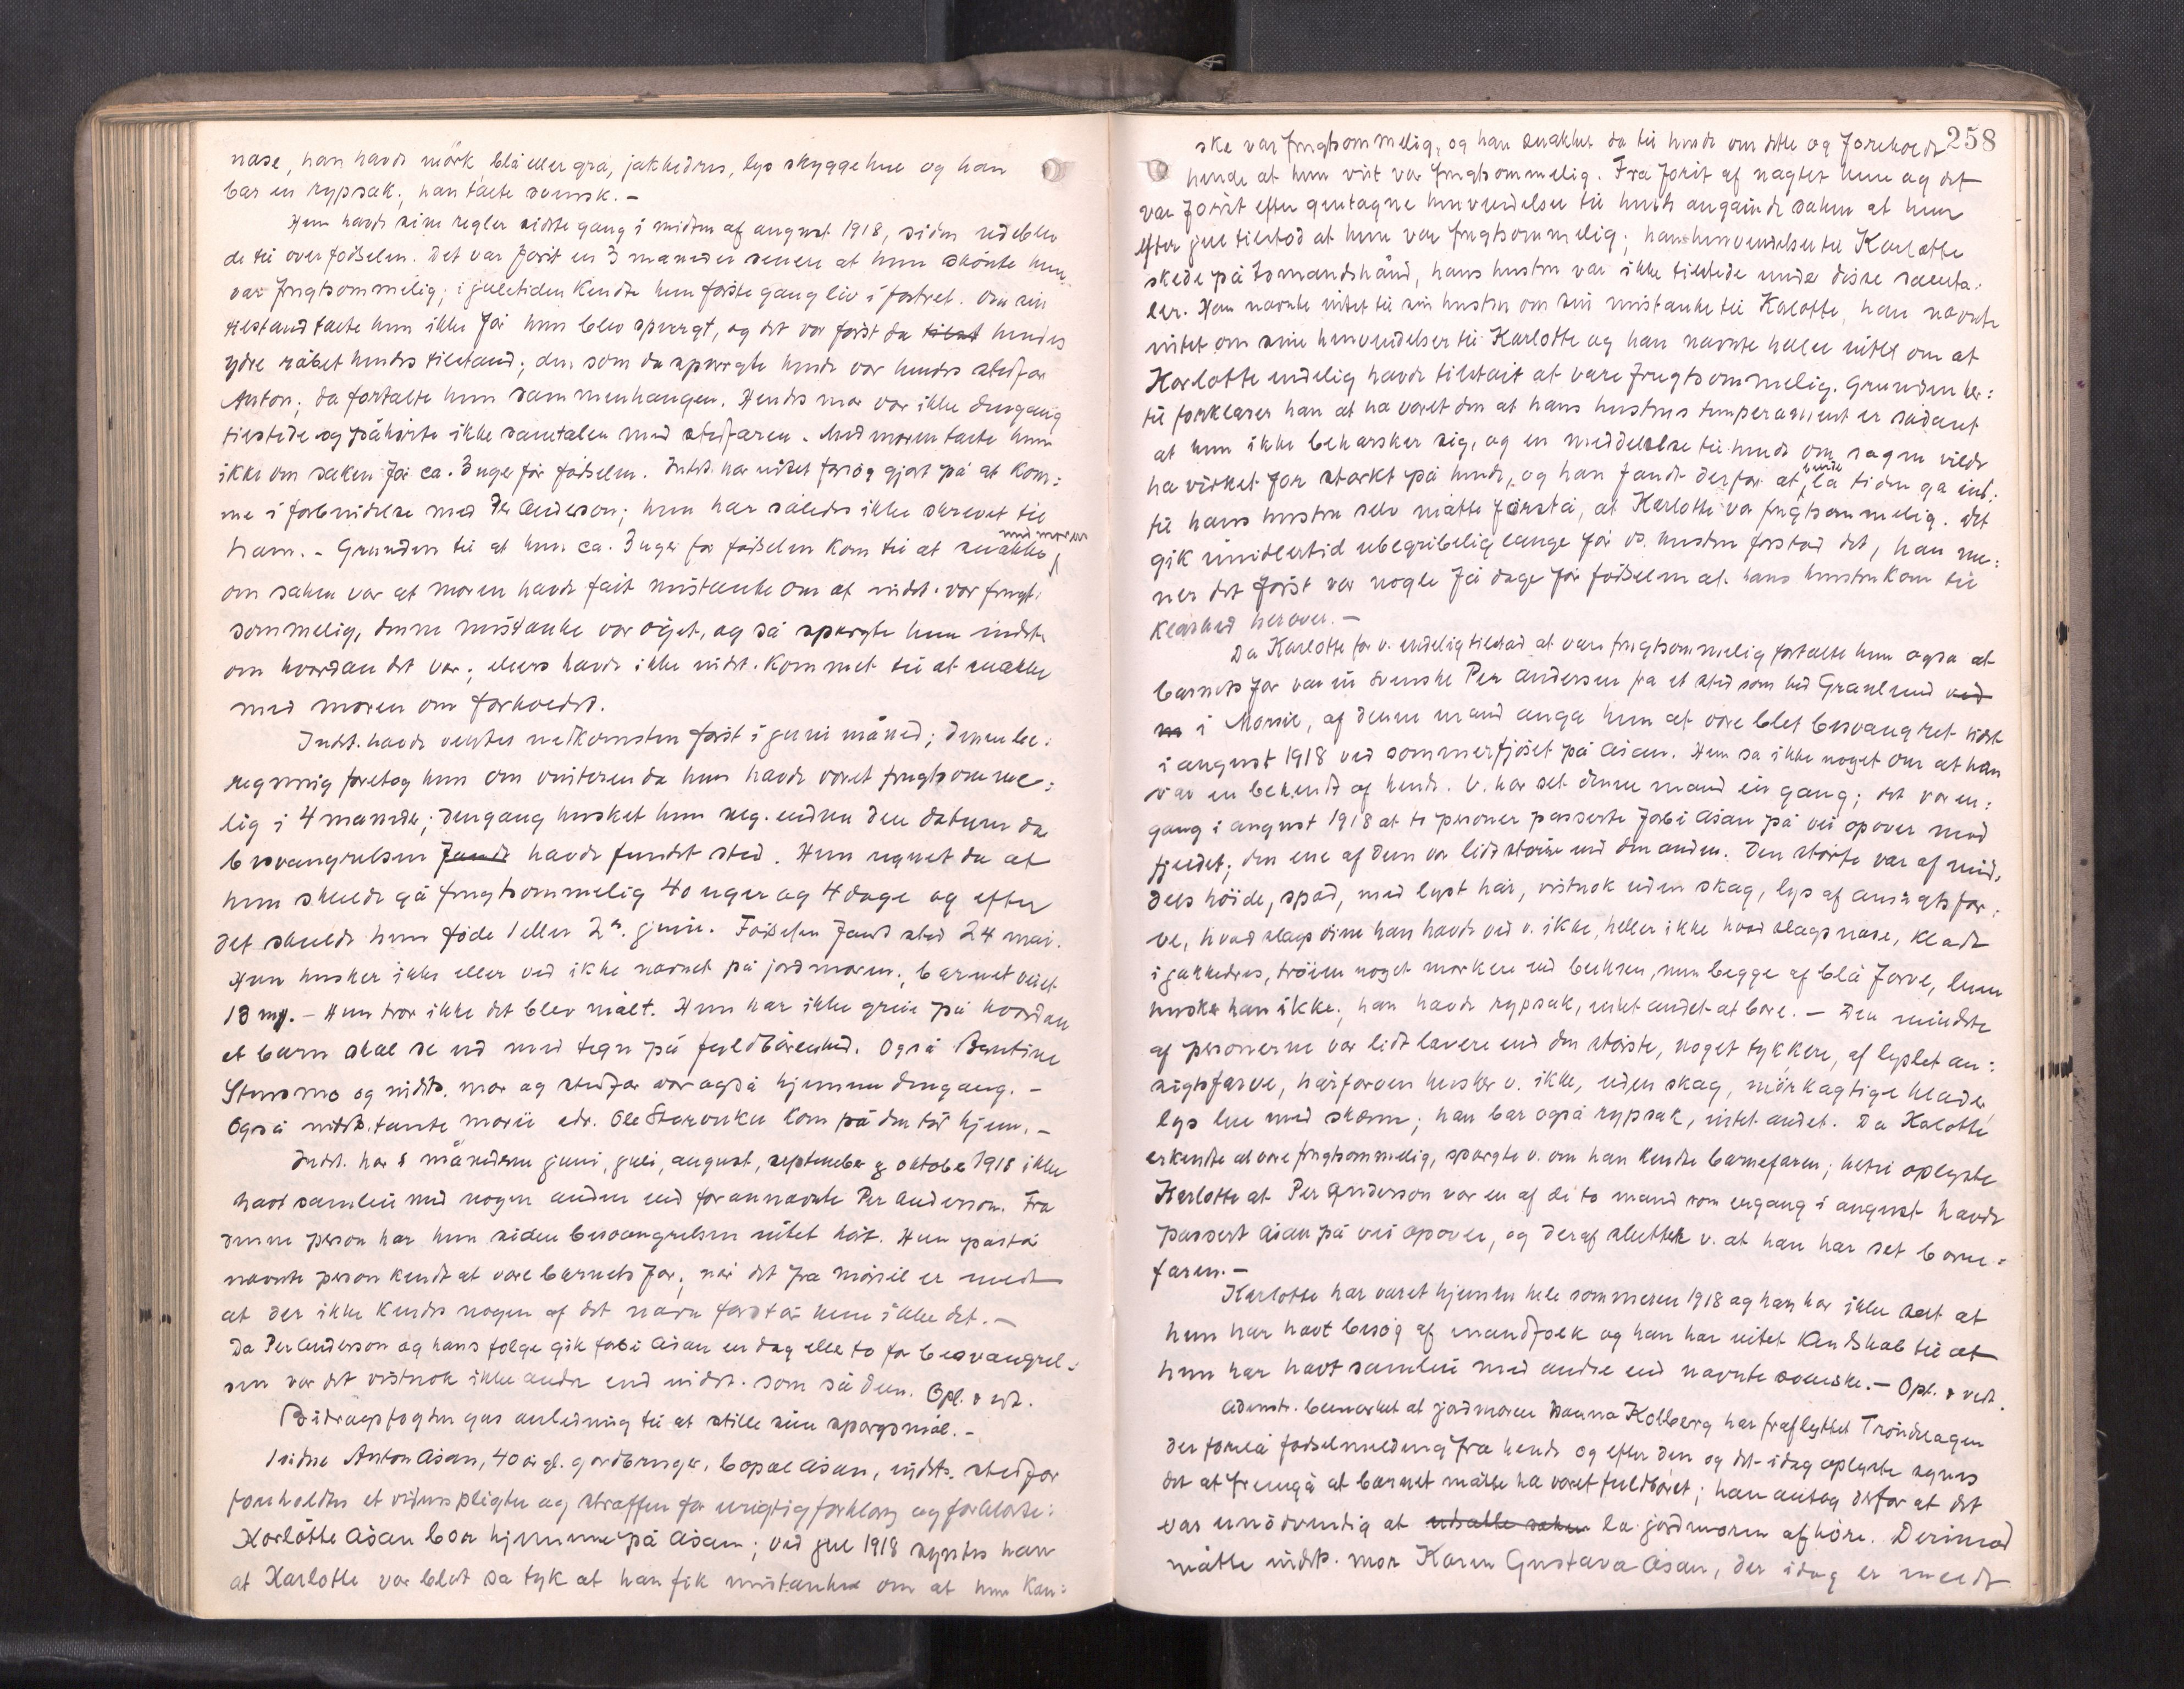 nase, han havde mörk, blå eller grå, jakkedres, lys skyggehue og han
bar en rypsak; han talte svensk. –
Hun havde sine regler sidste gang i midten af august 1918, siden udeblev
de til over fødselen. Det var först en 3 maneder senere at hun skönte hun
var frugtsommelig; i juletiden kendte hun förste gang liv i fostret. Om sin
tilstand talte hun ikke för hun blev spurgt, og det var först da tilst hendes
ydre råbet hendes tilstand; den som da spurgte hende var hendes stedfar
Anton; da fortalte hun sammenhangen. Hendes mor var ikke dengang
tilstede og påhörte ikke samtalen med stedfaren. Med moren talte hun
ikke om saken för ca. 3 uger för födselen. Indst. har intet forsög gjort på at kom:
me i forbindelse med Per Anderson; hun har således ikke skrevet til
ham. – Grunden til at hun ca. 3 uger för födselen kom til at snakke med moren
om saken var at moren havde fåit mistanke om at indst. var frugt:
sommelig, denne mistanke var öget, og så spurgte hun indst.
om hvordan det var; ellers havde ikke indst. kommet til at snakke
med moren om forholdet.
Indst. havde ventet nedkomsten först i juni måned; denne be:
regning foretog hun om vinteren da hun havde varet frugtsomme:
lig i 4 maneder; dengang husket hun neg. endnu den datum da
besvangrelsen fandt havde fundet sted. Hun regnet da at
hun skulde gå frugtsommelig 40 uger og 4 dage og efter
det skulde hun föde 1 eller 2n. juni. Födselen fandt sted 24 mai.
Hun husker ikke eller ved ikke navnet på jordmoren; barnet veiet
13 mg. – Hun tror ikke det blev målt. Hun har ikke greie på hvordan
et barn skal se ud med tegn på fuldbårenhed. Også Bentine
og indsts. mor og stedfar var også hjemme dengang. –
Også indsts. tante Marie edr. Ole kom på den tid hjem. –
Indst. har i månederne juni, juli, august, september & oktober 1918 ikke
havt samleie med nogen anden end forannavnte Per Anderson. Fra
denne person har hun siden besvangrelsen intet hört. Hun påstår
navnte person kendt at vare barnets far; når det fra Mörsil er meldt
at der ikke kendes nogen af det navn forstår hun ikke det. –
Da Per Anderson og hans fölge gik forbi Åsan en dag eller to för besvangrel:
sen var det vistnok ikke andre end indst. som så dem. Opl. & vedt.
Bidragsfogden gas anledning til at stille sine spörgsmål. –
1 vidne Anton Åsan, 40 år gl. gardbruger, bopæl Åsan, indsts. stedfar
foreholdtes et vidnes pligter og straffen for urigtig forklaring og forklarte:
Karlotte Åsan bor hjemme på Åsan; ved jul 1918 syntes han
at Karlotte var blet så tyk at han fik mistanke om at hun kan:
258
ske var frugtsommelig, og han snakket da til hende om dette og foreholdt
hende at hun vist var frugtsommelig. Fra först af nagtet hun og det
var först efter gentagne henvendelser til hende angående saken at hun
efter jul tilstod at hun var frugtsommelig; hans henvendelser til Karlotte
skede på tomandshånd, hans hustru var ikke tilstede under disse samta:
ler. Han navnte intet til sin hustru om sin mistanke til Kalotte, han navnte
intet om sine henvendelser til Karlotte og han navnte heller intet om at
Karlotte endelig havde tilståit at vare frugtsommelig. Grunden her:
til forklarer han at ha varet den at hans hustrus temperament er sådant
at hun ikke behersker sig, og en meddelelse til hende om sagen vilde
ha virket for starkt på hende, og han fandt derfor at burde la tiden gå ind:
til hans hustru selv måtte forstå, at Karlotte var frugtsommelig. Det
gik imidlertid ubegribelig lange för vs. hustru forstod det, han me:
ner det först var nogle få dage för födselen at hans hustru kom til
klarhed herover. –
Da Karlotte for v. endelig tilstod at vare frugtsommelig fortalte hun også at
barnets far var en svenske Per Anderson fra et sted som hed Granlund ved
i Mörsil, af denne mand angav hun at vare blet besvangret sidst
i august 1918 ved sommerfjöset på Åsan. Hun sa ikke noget om at han
var en bekendt af hende. V. har set denne mand ein gang; det var en:
gang i august 1918 at to personer passerte forbi Åsan på vei opover mod
fjeldet; den ene af dem var lidt större end den anden. Den störste var af mid:
dels höide, spad, med lyst hår, vistnok uden skag, lys af ansigtsfar:
ve, hvad slags öine han havde ved v. ikke, heller ikke hvad slags nase, kladt
i jakkedres, tröien noget mörkere end buksen, men begge af blå farve, huen
husker han ikke; han havde rypsak, intet andet at bare. – Den mindste
af personerne var lidt lavere end den störste, noget tykkere, af lyslet an:
sigtsfarve, hårfarven husker v. ikke, uden skag, mörkagtige klader,
lys lue med skarm; han bar også rypsak, intet andet. Da Kalotte
erkendte at vare frugtsommelig, spurgte v. om han kendte barnefaren; hertil oplyste
Karlotte at Per Anderson var en af de to mand som engang i august havde
passert Åsan på vei opover, og deraf slutter v. at han har set barne:
faren. –
Karlotte har varet hjemme hele sommeren 1918 og han har ikke set at
hun har havt besög af mandfolk og han har intet kendskab til at
hun har havt samleie med andre end navnte svenske. – Opl. & vedt.
Admstr. bemerket at jordmoren Hanna Kolberg har fraflyttet Tröndelagen
der forelå födselmelding fra hende og efter den og det idag oplyste synes
det at fremgå at barnet måtte ha varet fuldbåret; han antog derfor at det
var unödvendig at udsatte saken la jordmoren afhöre. Derimod
måtte indsts. mor Karen Gustava Åsan, der idag er meldt